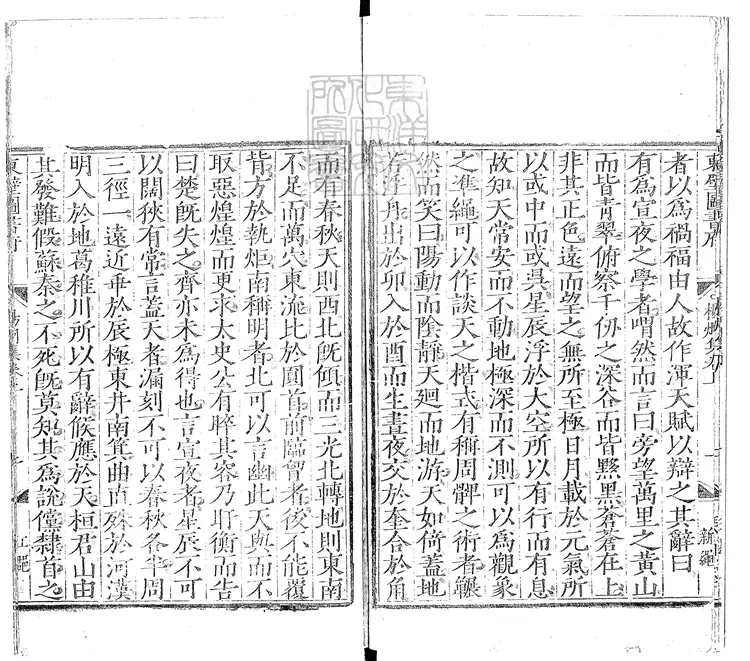 東壁圖書府
新繩
者以為禍福由人故作渾天賦以辯之其辭曰
有為宣夜之學者喟然而言曰旁望萬里之黃山
而皆青翠俯察千仞之深谷而皆黝黑蒼蒼在上
非其正色遠而望之無所至極日月載於元氣所
以或中而或昃星辰浮於大空所以有行而有息
故知天常安而不動地極深而不測可以為觀象
之準繩可以作談天之楷式有稱周髀之術者囅
然而笑曰陽動而隂靜天迴而地游天如倚蓋地
若浮舟出於卯入於酉而生晝夜交於奎合於角
而有春秋天則西北既傾而三光北轉地則東南
不足而萬穴東流比於圓首前臨胷者後不能覆
背方於執炬南稱明者北可以言幽此天與而不
取惡煌煌而更求太史公有睟其容乃盱衡而告
曰楚既失之齊亦未為得也言宣夜者星辰不可
以闊狹有常言蓋天者漏刻不可以春秋各半周
三徑一遠近乖於辰極東井南箕曲直殊於河漢
明入於地葛稚川所以有辭候應於天桓君山由
其發難假蘇秦之不死既莫知其為說儻隸首之